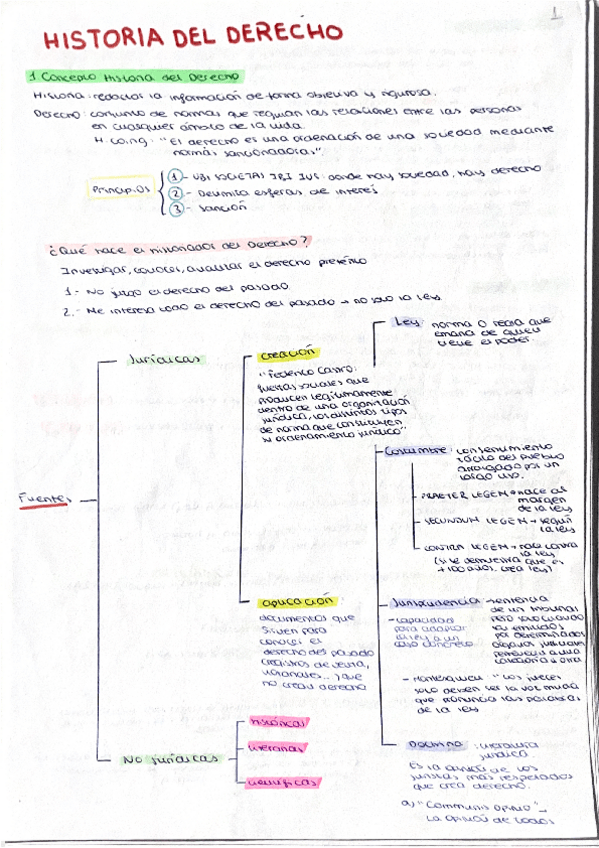 1
HISTORIA DEL DERECHO
1 Concepto Historia del Derecho
Historia: redactas la información de forma objetiva y rigurosa.
Derecho: conjunto de normas que regulan las relaciones entre las personas
en cualquier ámbito de la vida.
H. Coing: "El derecho es una ordenación de una sociedad mediante
normas sancionadoras"
Principios
1- UBI SOCIETAS IBI IUS: donde hay sociedad, hay derecho
2- Delimita esferas de interés
3- Sanción
¿Qué hace el historiador del Derecho?
Investigar, conocer, analizar el derecho pretérito
1.- No juzgo el derecho del pasado.
2.- Me interesa todo el derecho del pasado → no solo la ley.
Fuentes
Jurídicas
creación
"Federico Castro:
fuerzas sociales que
producen legítimamente
dentro de una organización
jurídica, los distintos tipos
de norma que constituyen
su ordenamiento jurídico"
Ley: norma o regla que
emana de quien
tiene el poder
Costumbre: consentimiento
tácito del pueblo
arraigado por un
largo uso.
PRAETER LEGEM → nace al
margen
de la ley
SECUNDUM LEGEM → según
la ley
CONTRA LEGEM → va contra
la ley
(si se demuestra que es
+100 años, crea ley)
aplicación:
documentos que
sirven para
conocer el
derecho del pasado
(registros de venta,
notariales...) que
no crean derecho
Jurisprudencia → sentencia
de un tribunal
pero solo cuando
es emitidos
por determinados
órganos judiciales
-capacidad
para adaptar
la ley a un
caso concreto.
- Montesquieu: "Los jueces
solo deben ser la voz muda
que pronuncia las palabras
de la ley
Doctrina: literatura
jurídica.
Es la opinión de los
juristas más respetados
que crea derecho.
a) "Communis opinio" →
La opinión de todos
No jurídicas
históricas
literarias
científicas